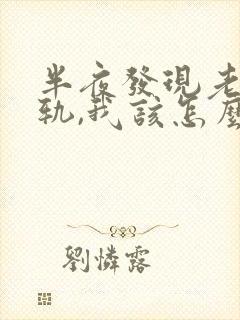 半夜發現老
軌,我該怎麼
劉憐露